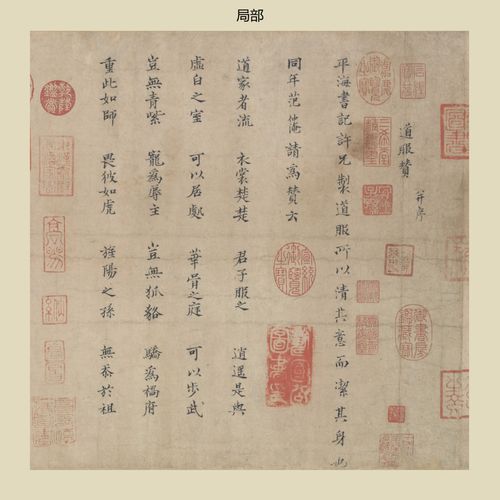 局部
道服贊 并序
平海書記許兄製道服所以清其意而潔其身也
同年范仲淹請為贊云
道家者流 衣裳楚楚 君子服之 逍遙是與
虛白之室 可以居處 華胥之庭 可以步武
豈無青紫 寵為辱主 豈無狐貉 驕為禍府
重此如師 畏彼如虎 旌陽之孫 無忝於祖